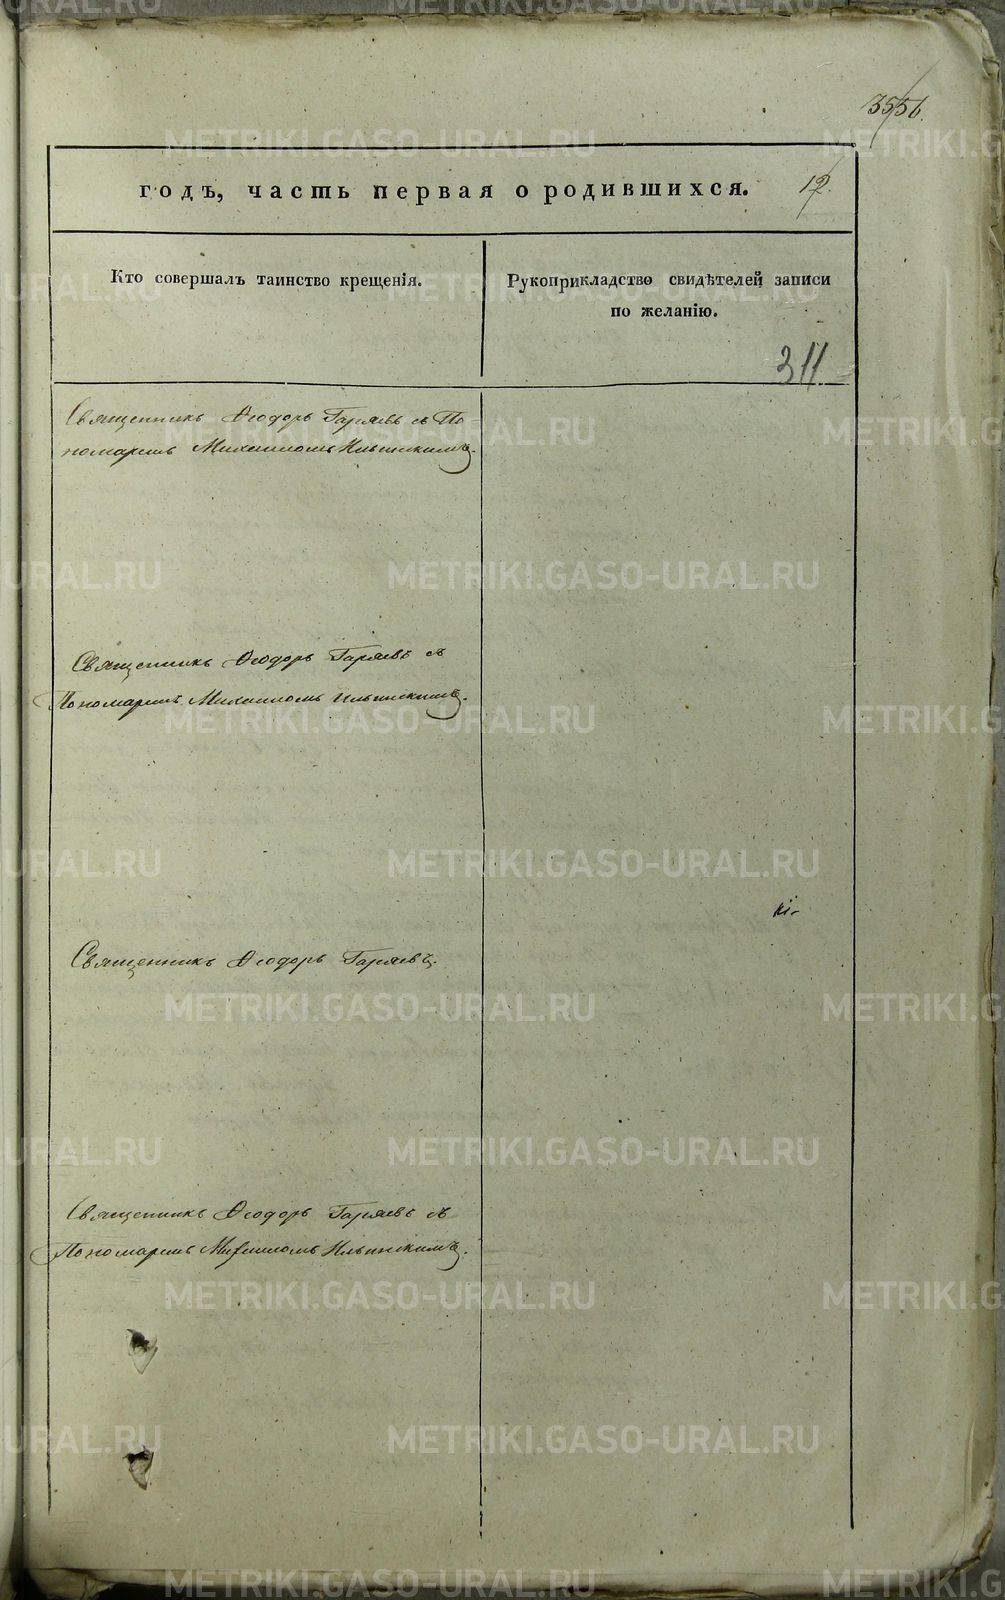 3556.
годъ, часть первая о родившихся. 12.
Кто совершалъ таинство крещенія.
Рукоприкладство свидѣтелей записи
по желанію.
311
Священникъ Ѳеодоръ Гаряевъ съ По
номаремъ Михаиломъ Ильинскимъ.
Священникъ Ѳеодоръ Гаряевъ съ
Пономаремъ Михаиломъ Ильинскимъ.
Священникъ Ѳеодоръ Гаряевъ.
Священникъ Ѳеодоръ Гаряевъ съ
Пономаремъ Михаиломъ Ильинскимъ.
METRIKI.GASO-URAL.RU